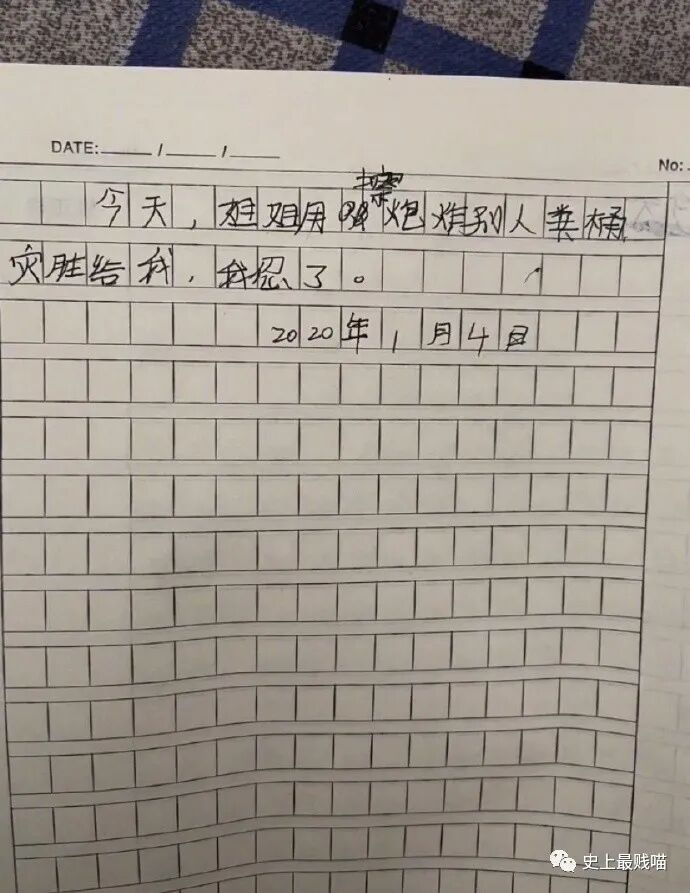 DATE: / /
No:
今天,姐姐用擦炮炸别人粪桶
灾胜给我,我忍了。
2020年1月4日
史上最贱喵